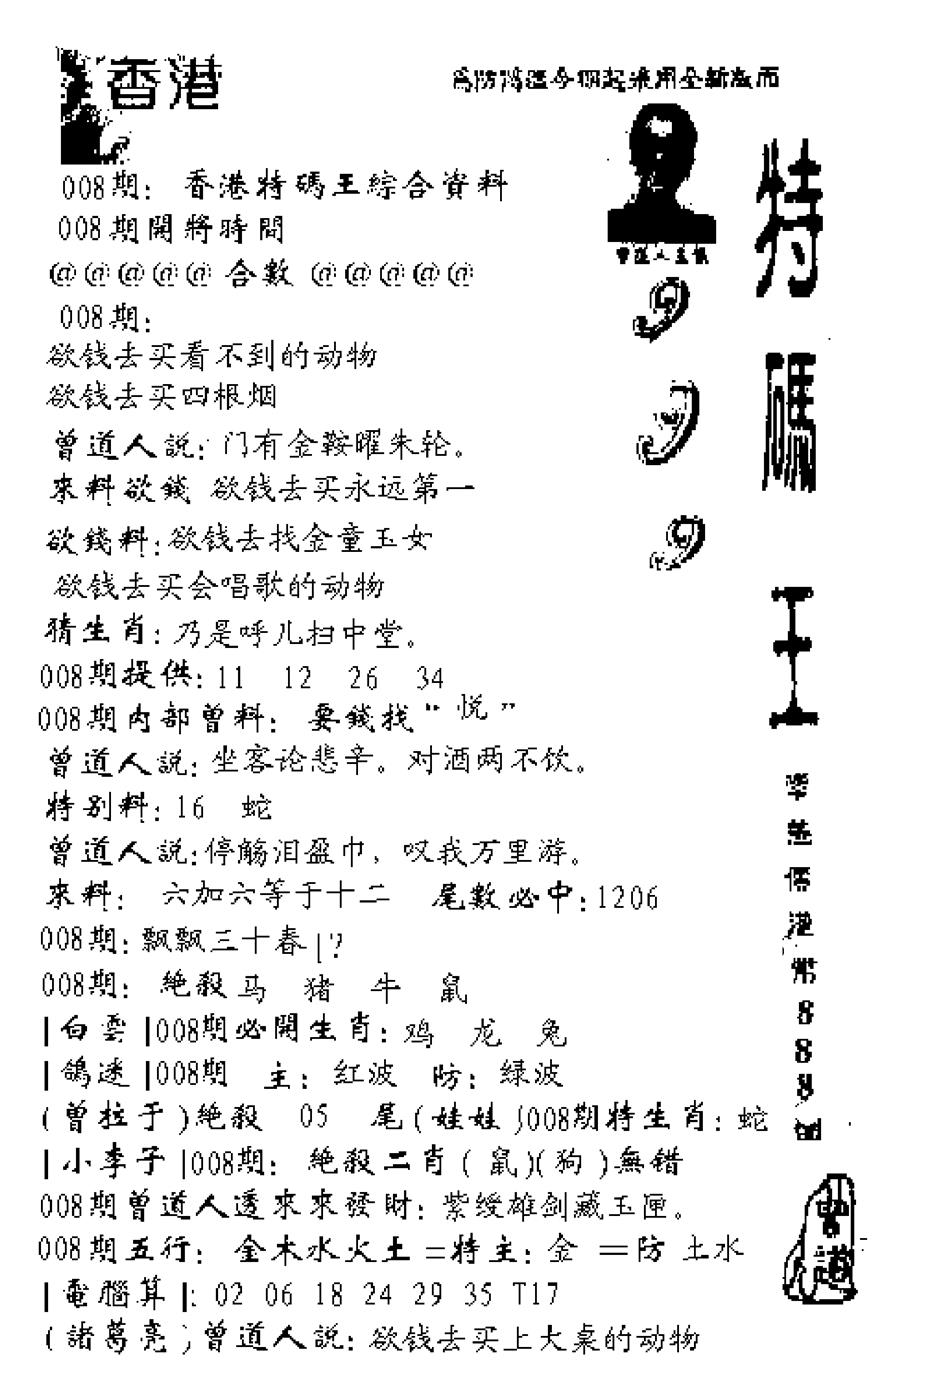 香港
為防濫造今期起采用全新版面
008期: 香港特碼王綜合資料
008期開將時間
@@@@@合數@@@@@
008期:
欲钱去买看不到的动物
欲钱去买四根烟
曾道人説:门有金鞍曜朱轮。
來料欲錢 欲钱去买永远第一
欲錢料:欲钱去找金童玉女
欲钱去买会唱歌的动物
猜生肖:乃是呼儿扫中堂。
008期提供:11 12 26 34
008期内部曾料: 要錢找“悦”
曾道人説:坐客论悲辛。对酒两不饮。
特别料:16 蛇
曾道人説:停觞泪盈巾,叹我万里游。
來料: 六加六等于十二 尾數必中:1206
008期:飘飘三十春|?
008期: 絶殺马 猪 牛 鼠
|白雲|008期必開生肖:鸡 龙 兔
|鴿迷|008期 主:红波 防:绿波
(曾拉于)絶殺 05 尾(娃娃)008期特生肖:蛇
|小李子|008期: 絶殺二肖(鼠)(狗)無错
008期曾道人透來來發財:紫绶雄剑藏玉匣。
008期五行: 金木水火土=特主:金 =防 土水
|電腦算|:02 06 18 24 29 35 T17
(諸葛亮)曾道人説:欲钱去买上大桌的动物
特碼王
999
港幣888